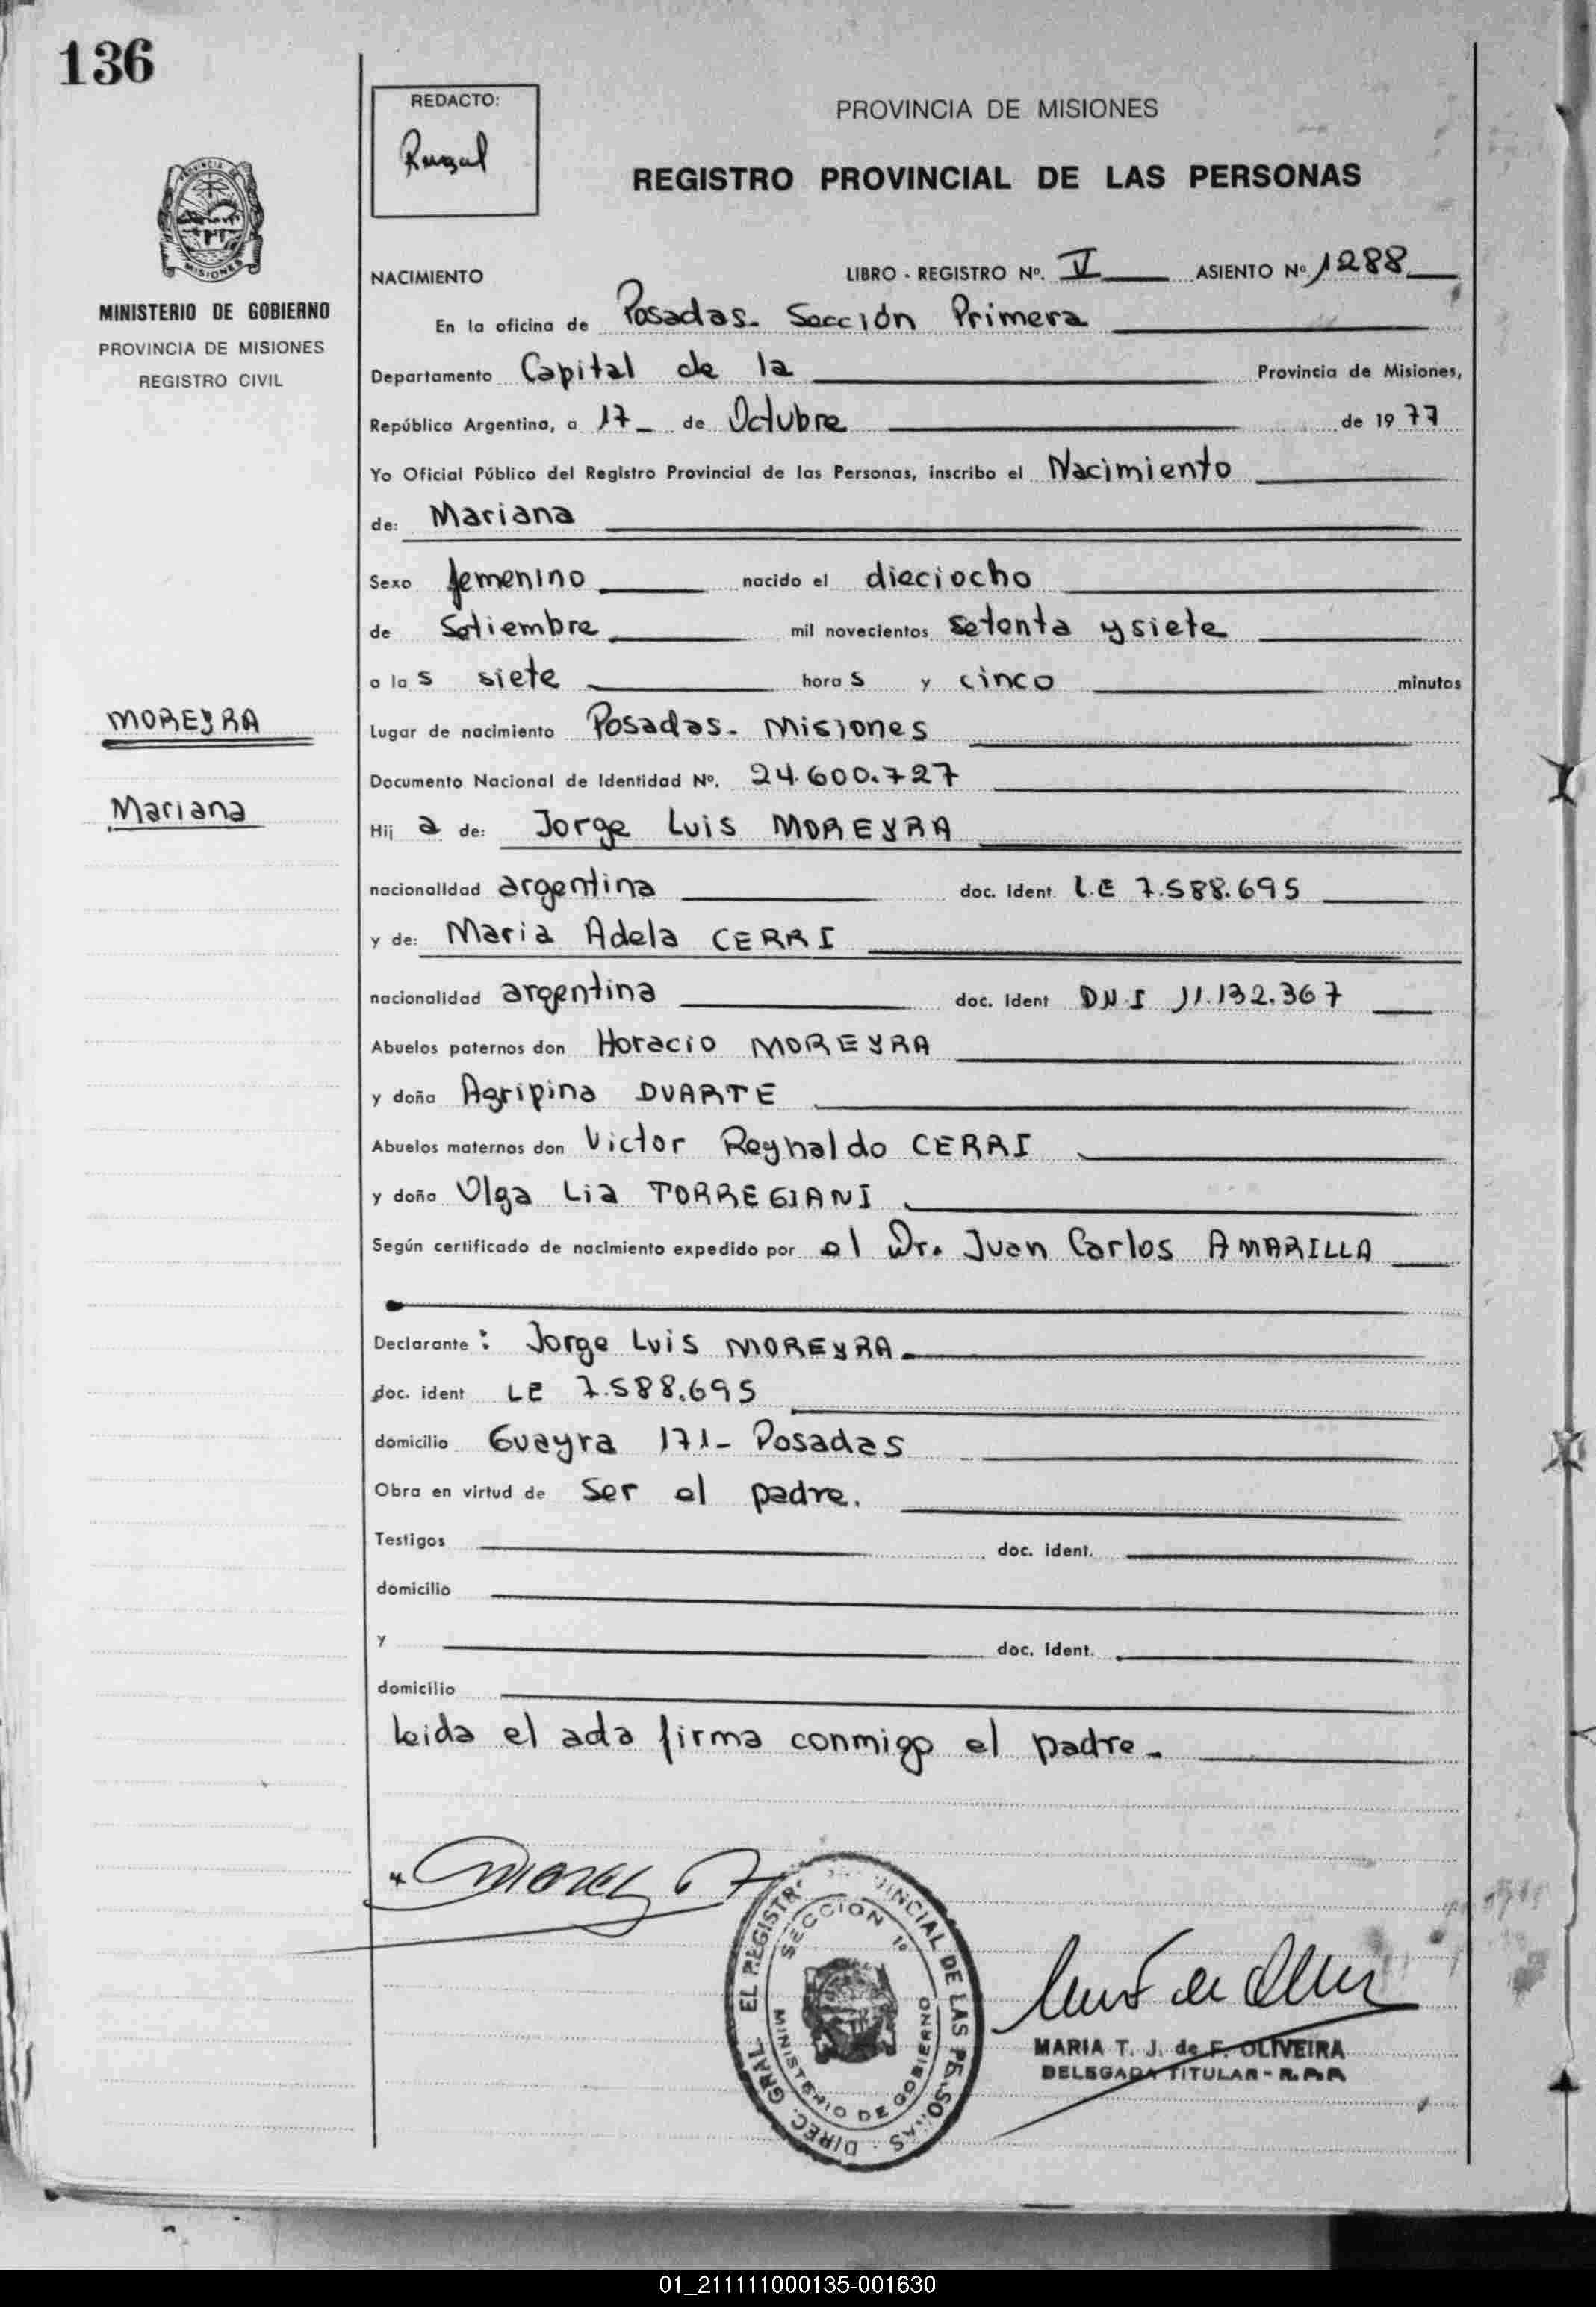 136
REDACTO:
PROVINCIA DE MISIONES
REGISTRO PROVINCIAL DE LAS PERSONAS
MINISTERIO DE GOBIERNO
PROVINCIA DE MISIONES
REGISTRO CIVIL
NACIMIENTO LIBRO - REGISTRO Nº. V ASIENTO Nº 1288
En la oficina de Posadas. Sección Primera
Departamento Capital de la Provincia de Misiones,
República Argentina, a 17 de Octubre de 1977
Yo Oficial Público del Registro Provincial de las Personas, inscribo el Nacimiento
de: Mariana
Sexo femenino nacido el dieciocho
de Setiembre mil novecientos setenta y siete
a las siete horas y cinco minutos
MOREYRA
Lugar de nacimiento Posadas- Misiones
Documento Nacional de Identidad Nº. 24.600.727
Mariana
Hija de: Jorge Luis MOREYRA
nacionalidad argentina doc. Ident L.E 7.588.695
y de: Maria Adela CERRI
nacionalidad argentina doc. Ident DNI 11.132.367
Abuelos paternos don Horacio MOREYRA
y doña Agripina DUARTE
Abuelos maternos don Victor Reynaldo CERRI
y doña Olga Lia TORREGIANI
Según certificado de nacimiento expedido por el Dr. Juan Carlos AMARILLA
Declarante: Jorge Luis MOREYRA
doc. ident LE 7.588.695
domicilio Guayra 171- Posadas
Obra en virtud de Ser el padre.
Testigos doc. ident.
domicilio
y doc. Ident.
domicilio
leida el acta firma conmigo el padre-
DIREC. GRAL. EL REGISTRO PROVINCIAL DE LAS PERSONAS
SECCION 1º
MINISTERIO DE GOBIERNO
MARIA T. J. de F. OLIVEIRA
DELEGADA TITULAR - R.P.P
01_211111000135-001630